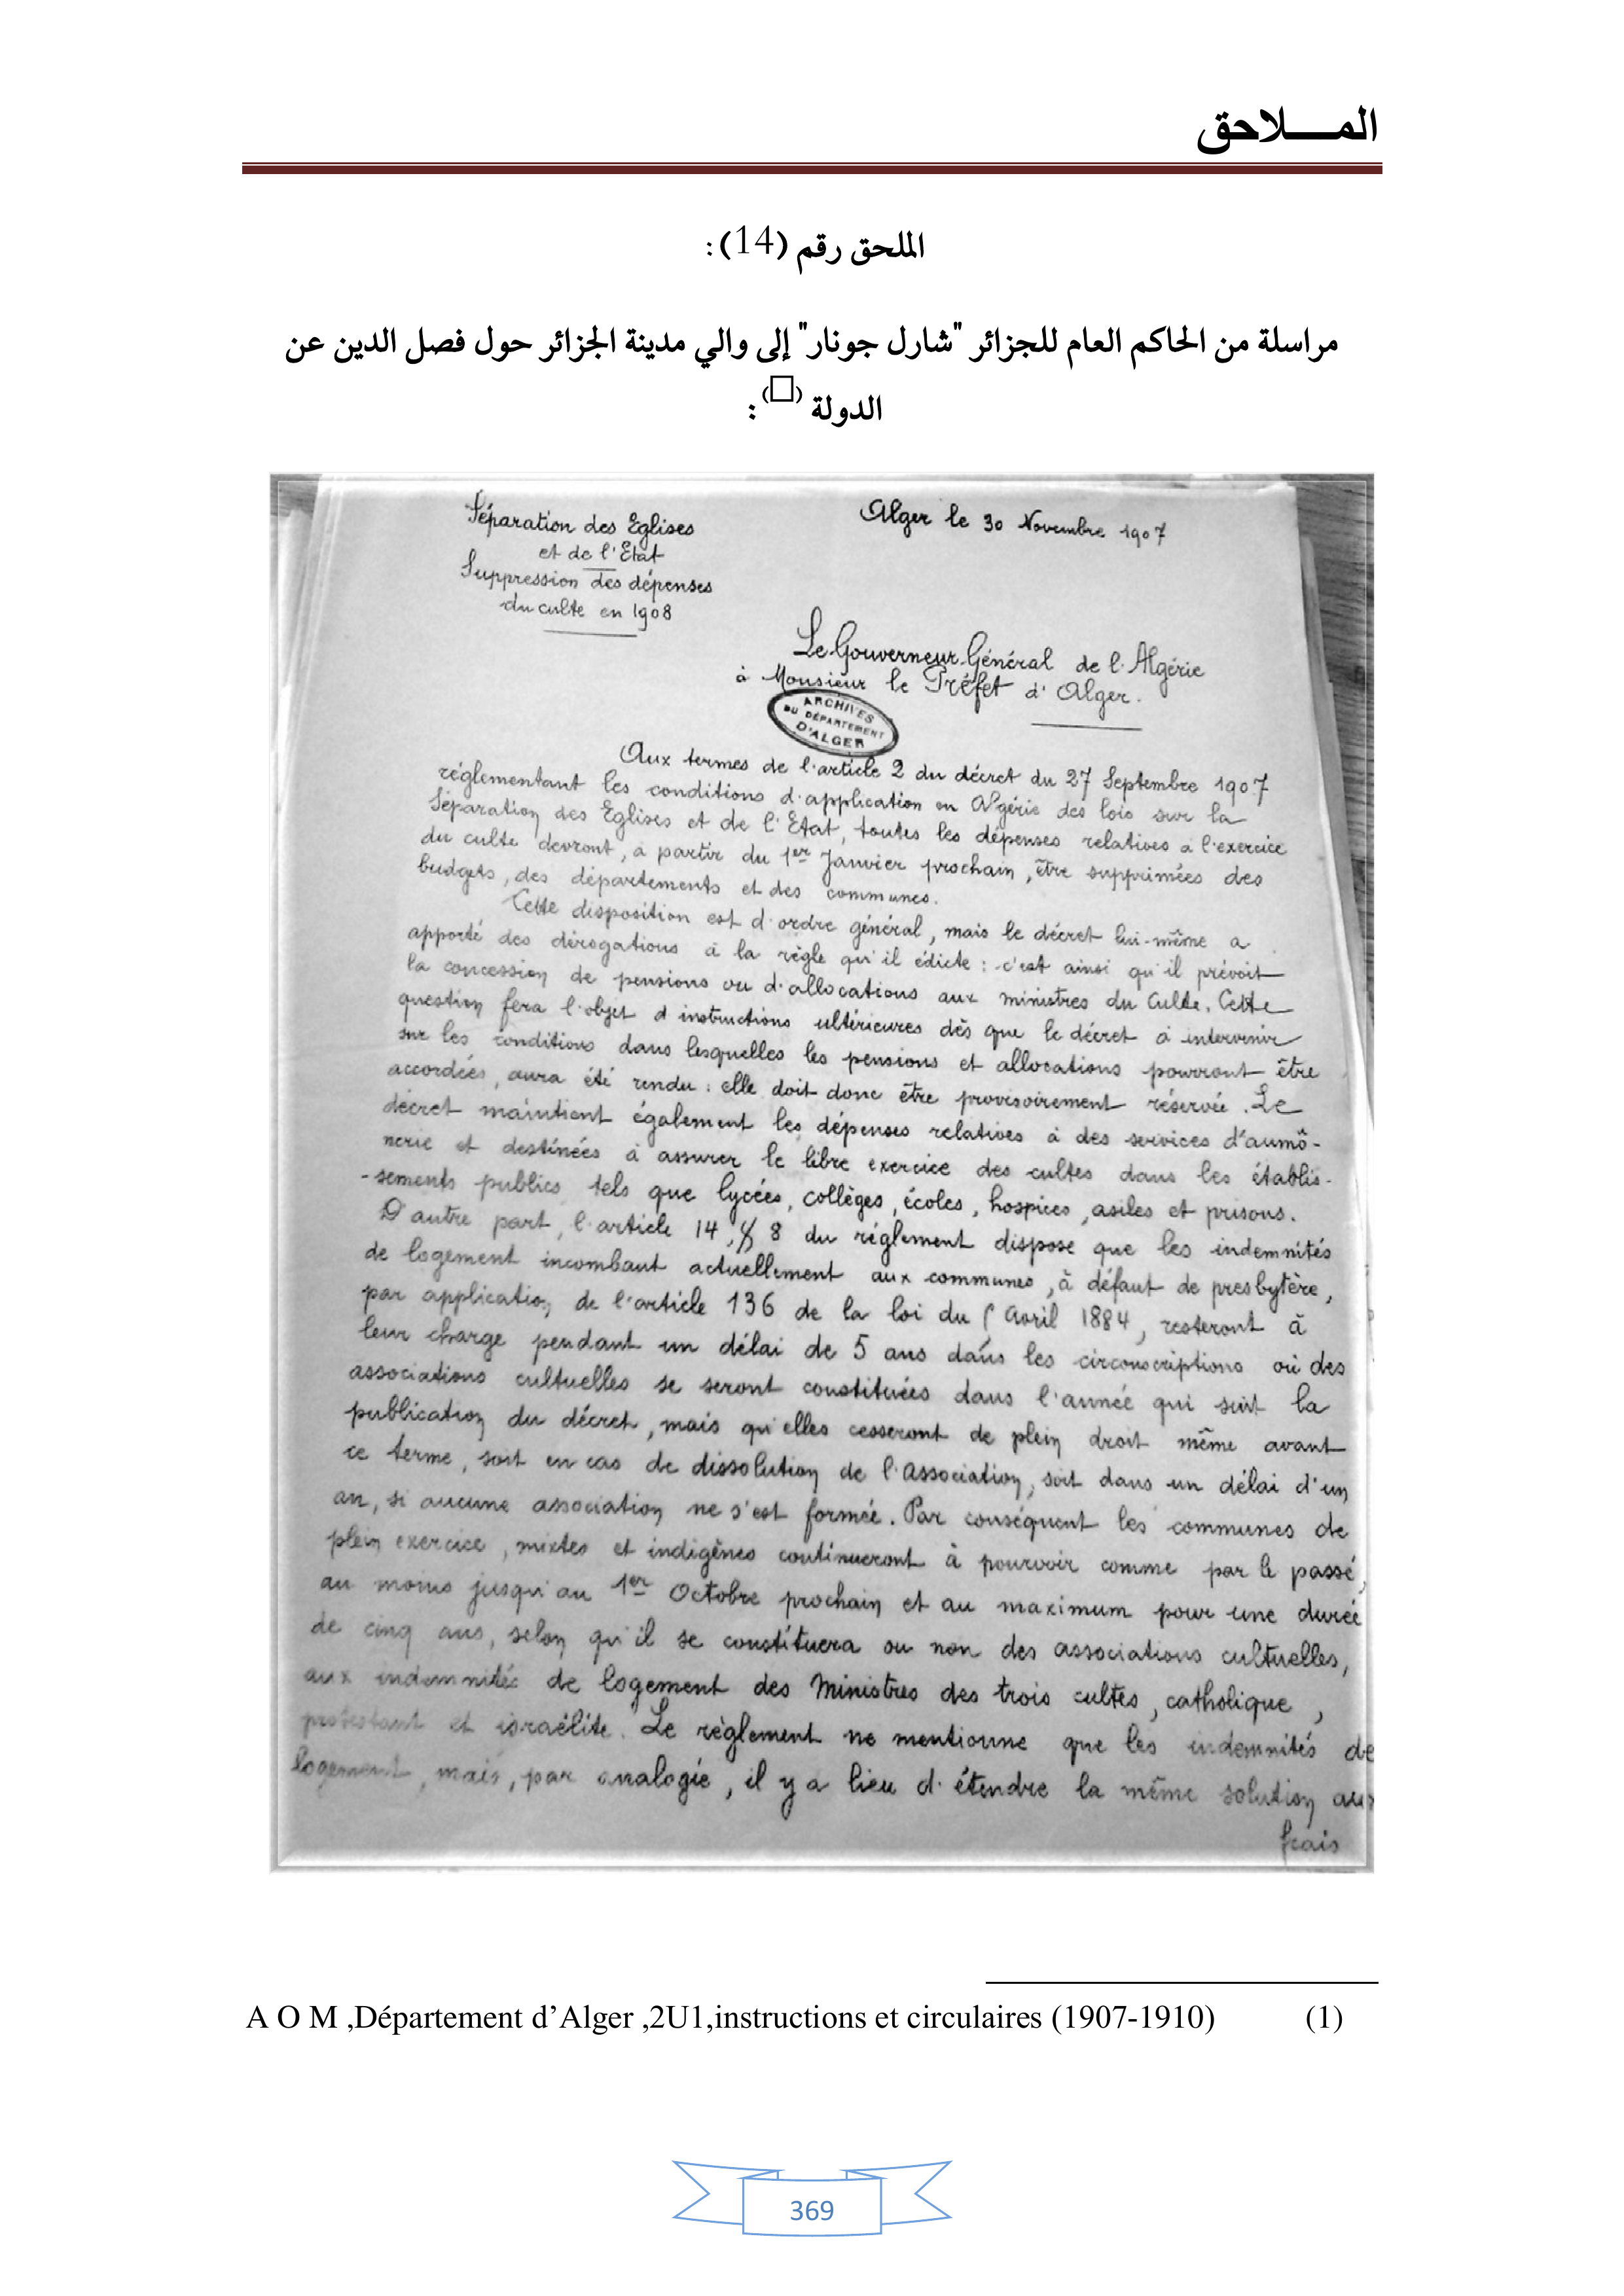 المـــــلاحق
الملحق رقم (14):
مراسلة من الحاكم العام للجزائر "شارل جونار" إلى والي مدينة الجزائر حول فصل الدين عن
الدولة (□):
Séparation des Eglises
et de l'Etat
Suppression des dépenses
du culte en 1908
Alger le 30 Novembre 1907
Le Gouverneur Général de l'Algérie
à Monsieur le Préfet d'Alger.
ARCHIVES
DU DÉPARTEMENT
D'ALGER
Aux termes de l'article 2 du décret du 27 Septembre 1907
réglementant les conditions d'application en Algérie des lois sur la
Séparation des Eglises et de l'Etat, toutes les dépenses relatives à l'exercice
du culte devront, à partir du 1er Janvier prochain, être supprimées des
budgets, des départements et des communes.
Cette disposition est d'ordre général, mais le décret lui-même a
apporté des dérogations à la règle qu'il édicte : c'est ainsi qu'il prévoit
la concession de pensions ou d'allocations aux ministres du Culte. Cette
question fera l'objet d'instructions ultérieures dès que le décret à intervenir
sur les conditions dans lesquelles les pensions et allocations pourront être
accordées, aura été rendu : elle doit donc être provisoirement réservée. Le
décret maintient également les dépenses relatives à des services d'aumô-
nerie et destinées à assurer le libre exercice des cultes dans les établis-
-sements publics tels que lycées, collèges, écoles, hospices, asiles et prisons.
D'autre part, l'article 14, § 8 du réglement dispose que les indemnités
de logement incombant actuellement aux communes, à défaut de presbytère,
par application de l'article 136 de la loi du 5 Avril 1884, resteront à
leur charge pendant un délai de 5 ans dans les circonscriptions où des
associations cultuelles se seront constituées dans l'année qui suit la
publication du décret, mais qu'elles cesseront de plein droit même avant
ce terme, soit en cas de dissolution de l'Association, soit dans un délai d'un
an, si aucune association ne s'est formée. Par conséquent les communes de
plein exercice, mixtes et indigènes continueront à pourvoir comme par le passé,
au moins jusqu'au 1er Octobre prochain et au maximum pour une durée
de cinq ans, selon qu'il se constituera ou non des associations cultuelles,
aux indemnités de logement des Ministres des trois cultes, catholique,
protestant et israélite. Le règlement ne mentionne que les indemnités de
logement, mais, par analogie, il y a lieu d'étendre la même solution aux
frais
A O M ,Département d'Alger ,2U1,instructions et circulaires (1907-1910) (1)
369